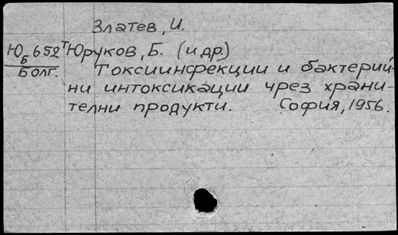 Златев, И.
Ю Б 652 Т Юруков, Б. (и др.)
Болг. Токсиинфекции и бактерий-
ни интоксикации чрез храни-
телни продукти. София, 1956.